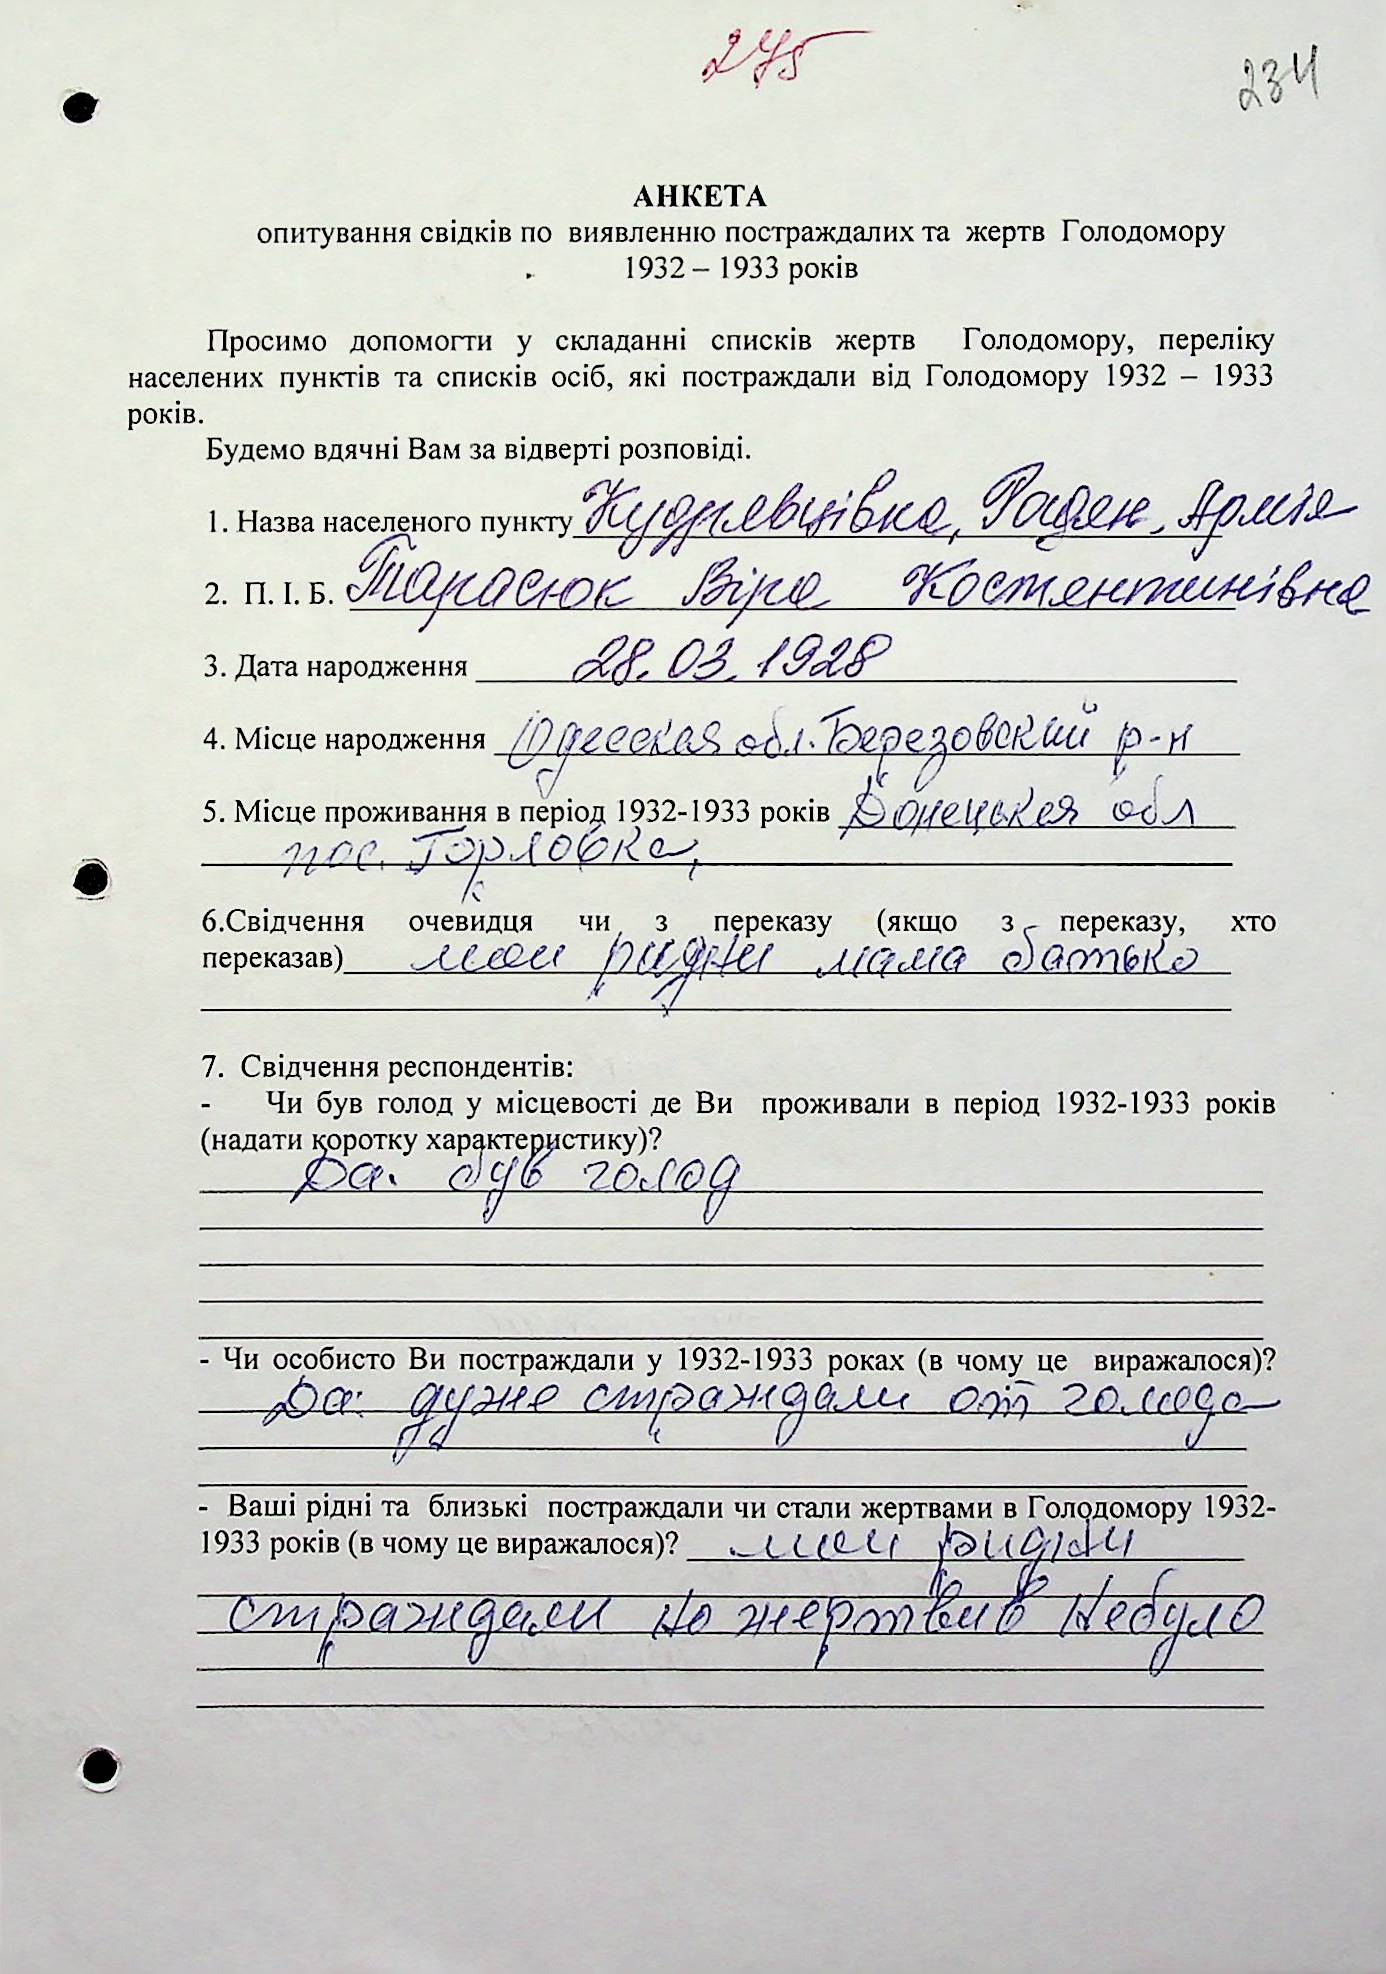 275
234
АНКЕТА
опитування свідків по виявленню постраждалих та жертв Голодомору
1932 – 1933 років
Просимо допомогти у складанні списків жертв Голодомору, переліку
населених пунктів та списків осіб, які постраждали від Голодомору 1932 – 1933
років.
Будемо вдячні Вам за відверті розповіді.
1. Назва населеного пункту Кудрявцівка, Радян. Армія
2. П. І. Б. Тарасюк Віра Костянтинівна
3. Дата народження 28.03.1928
4. Місце народження Одесская обл. Березовский р-н
5. Місце проживання в період 1932-1933 років Донецькая обл
пос. Горловка,
6.Свідчення очевидця чи з переказу (якщо з переказу, хто
переказав) мои ридни мама батько
7. Свідчення респондентів:
- Чи був голод у місцевості де Ви проживали в період 1932-1933 років
(надати коротку характеристику)?
Да. був голод
- Чи особисто Ви постраждали у 1932-1933 роках (в чому це виражалося)?
Да. дуже страждали от голода
- Ваші рідні та близькі постраждали чи стали жертвами в Голодомору 1932-
1933 років (в чому це виражалося)? мои ридни
страждали но жертвив небуло